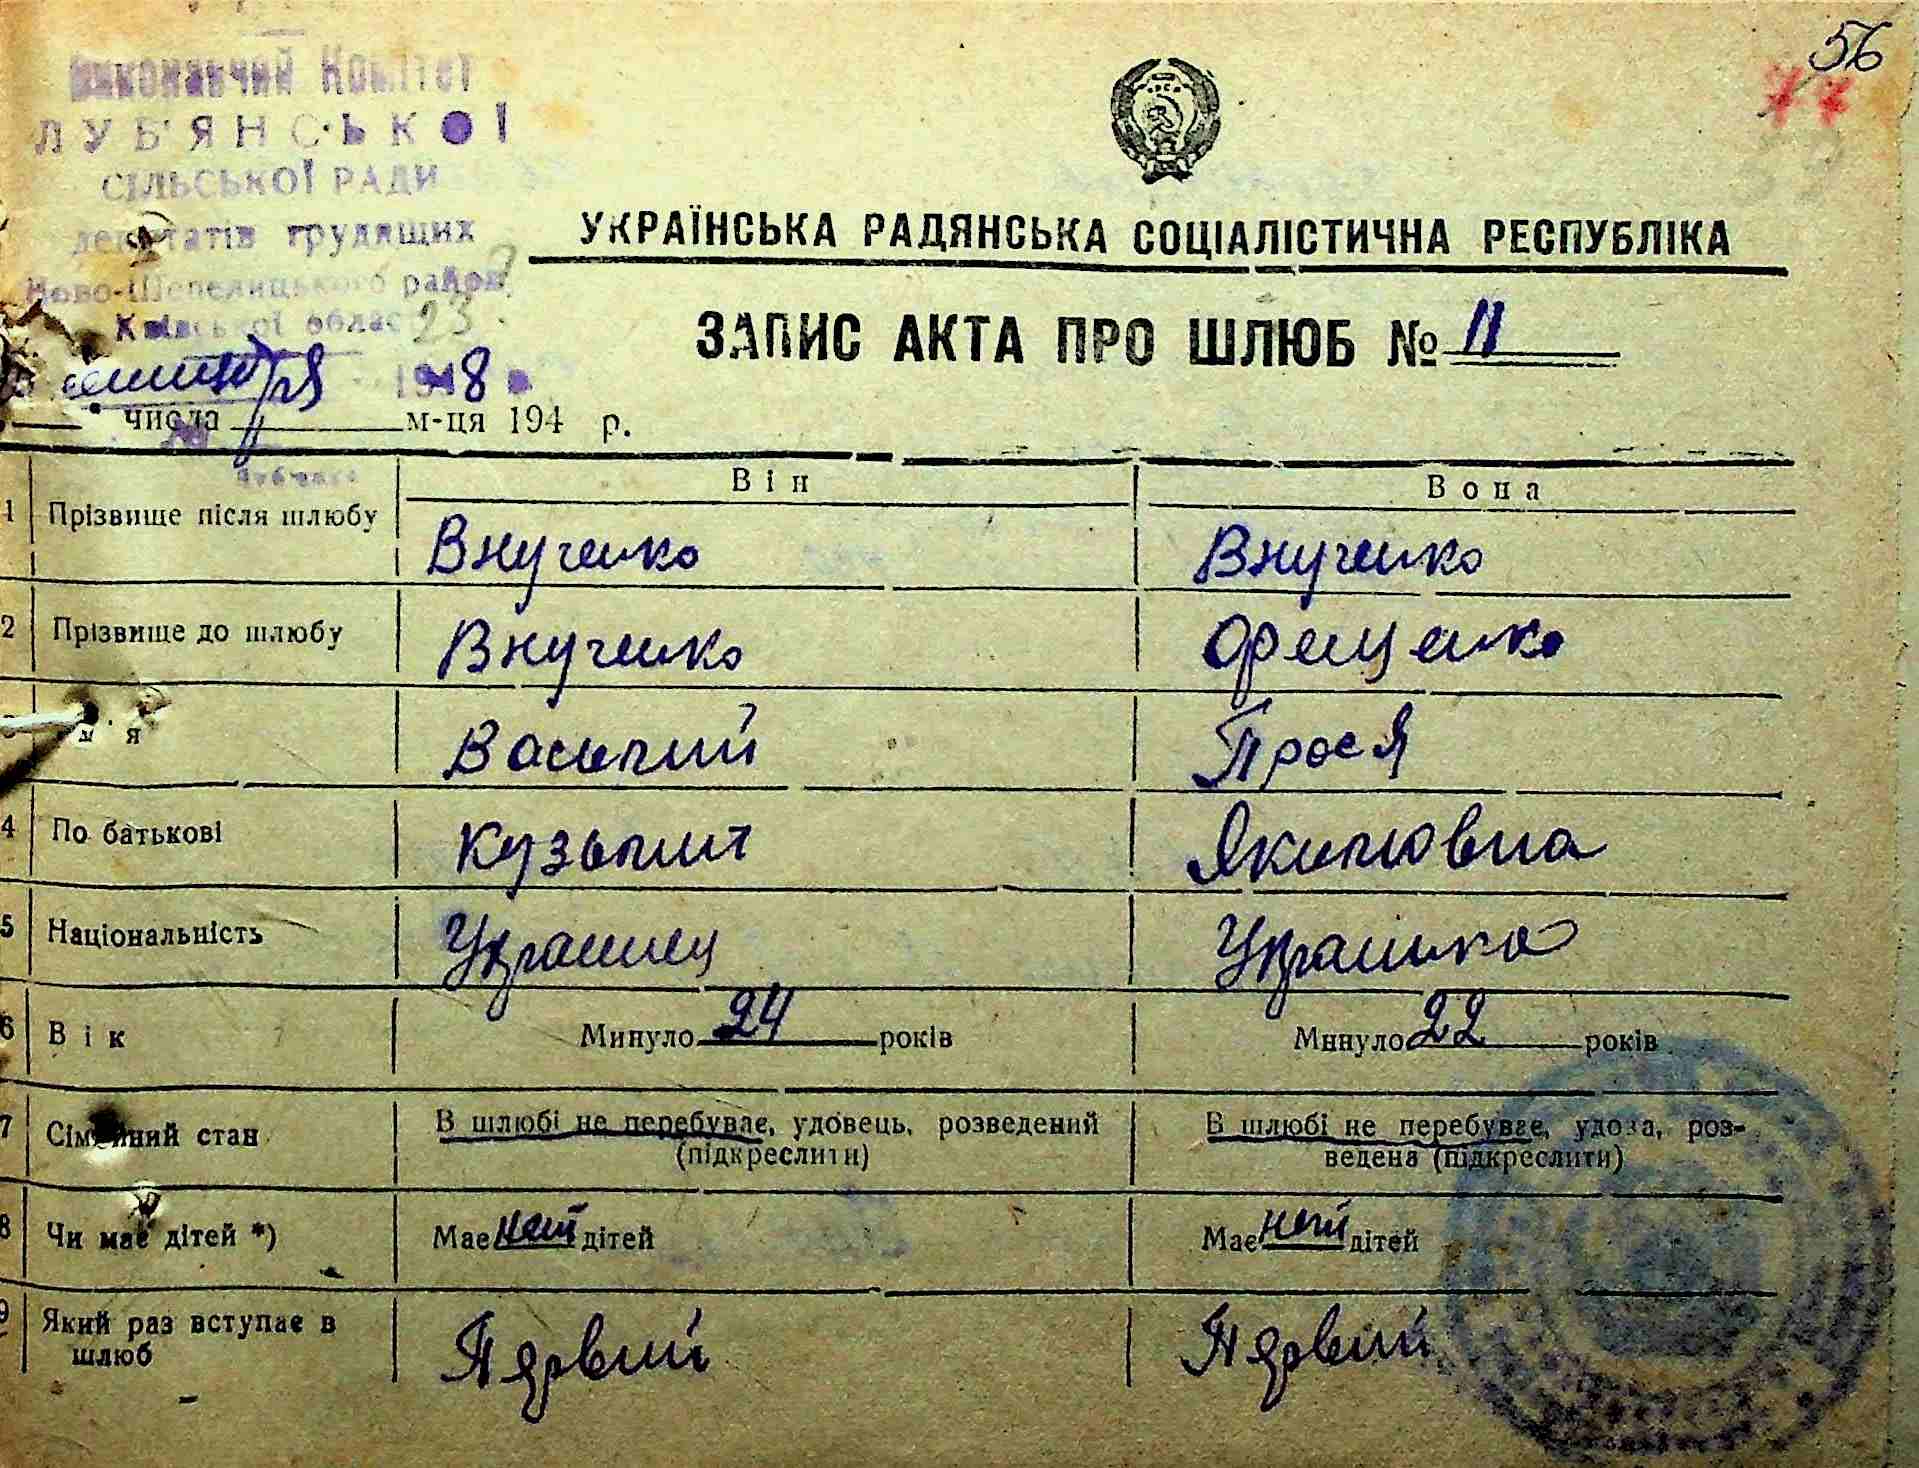 56
77
Виконавчий Комітет
ЛУБ'ЯНСЬКОЇ
СІЛЬСЬКОЇ РАДИ
депутатів трудящих
Ново-Шепелицького район
Київської облас
23
1948
УКРАЇНСЬКА РАДЯНСЬКА СОЦІАЛІСТИЧНА РЕСПУБЛІКА
ЗАПИС АКТА ПРО ШЛЮБ № 11
числа м-ця 194 р.
Він Вона
1 Прізвище після шлюбу Внученко Внученко
2 Прізвище до шлюбу Внученко Орещенко
м'я Василий Прося
4 По батькові Кузьмит Якимовна
5 Національність Украинец Украинка
6 Вік Минуло 24 років Минуло 22 років
7 Сімейний стан В шлюбі не перебуває, удовець, розведений В шлюбі не перебуває, удова, роз-
(підкреслити) ведена (підкреслити)
8 Чи має дітей *) Має нет дітей Має нет дітей
9 Який раз вступає в Пэрвий Пэрвий
шлюб